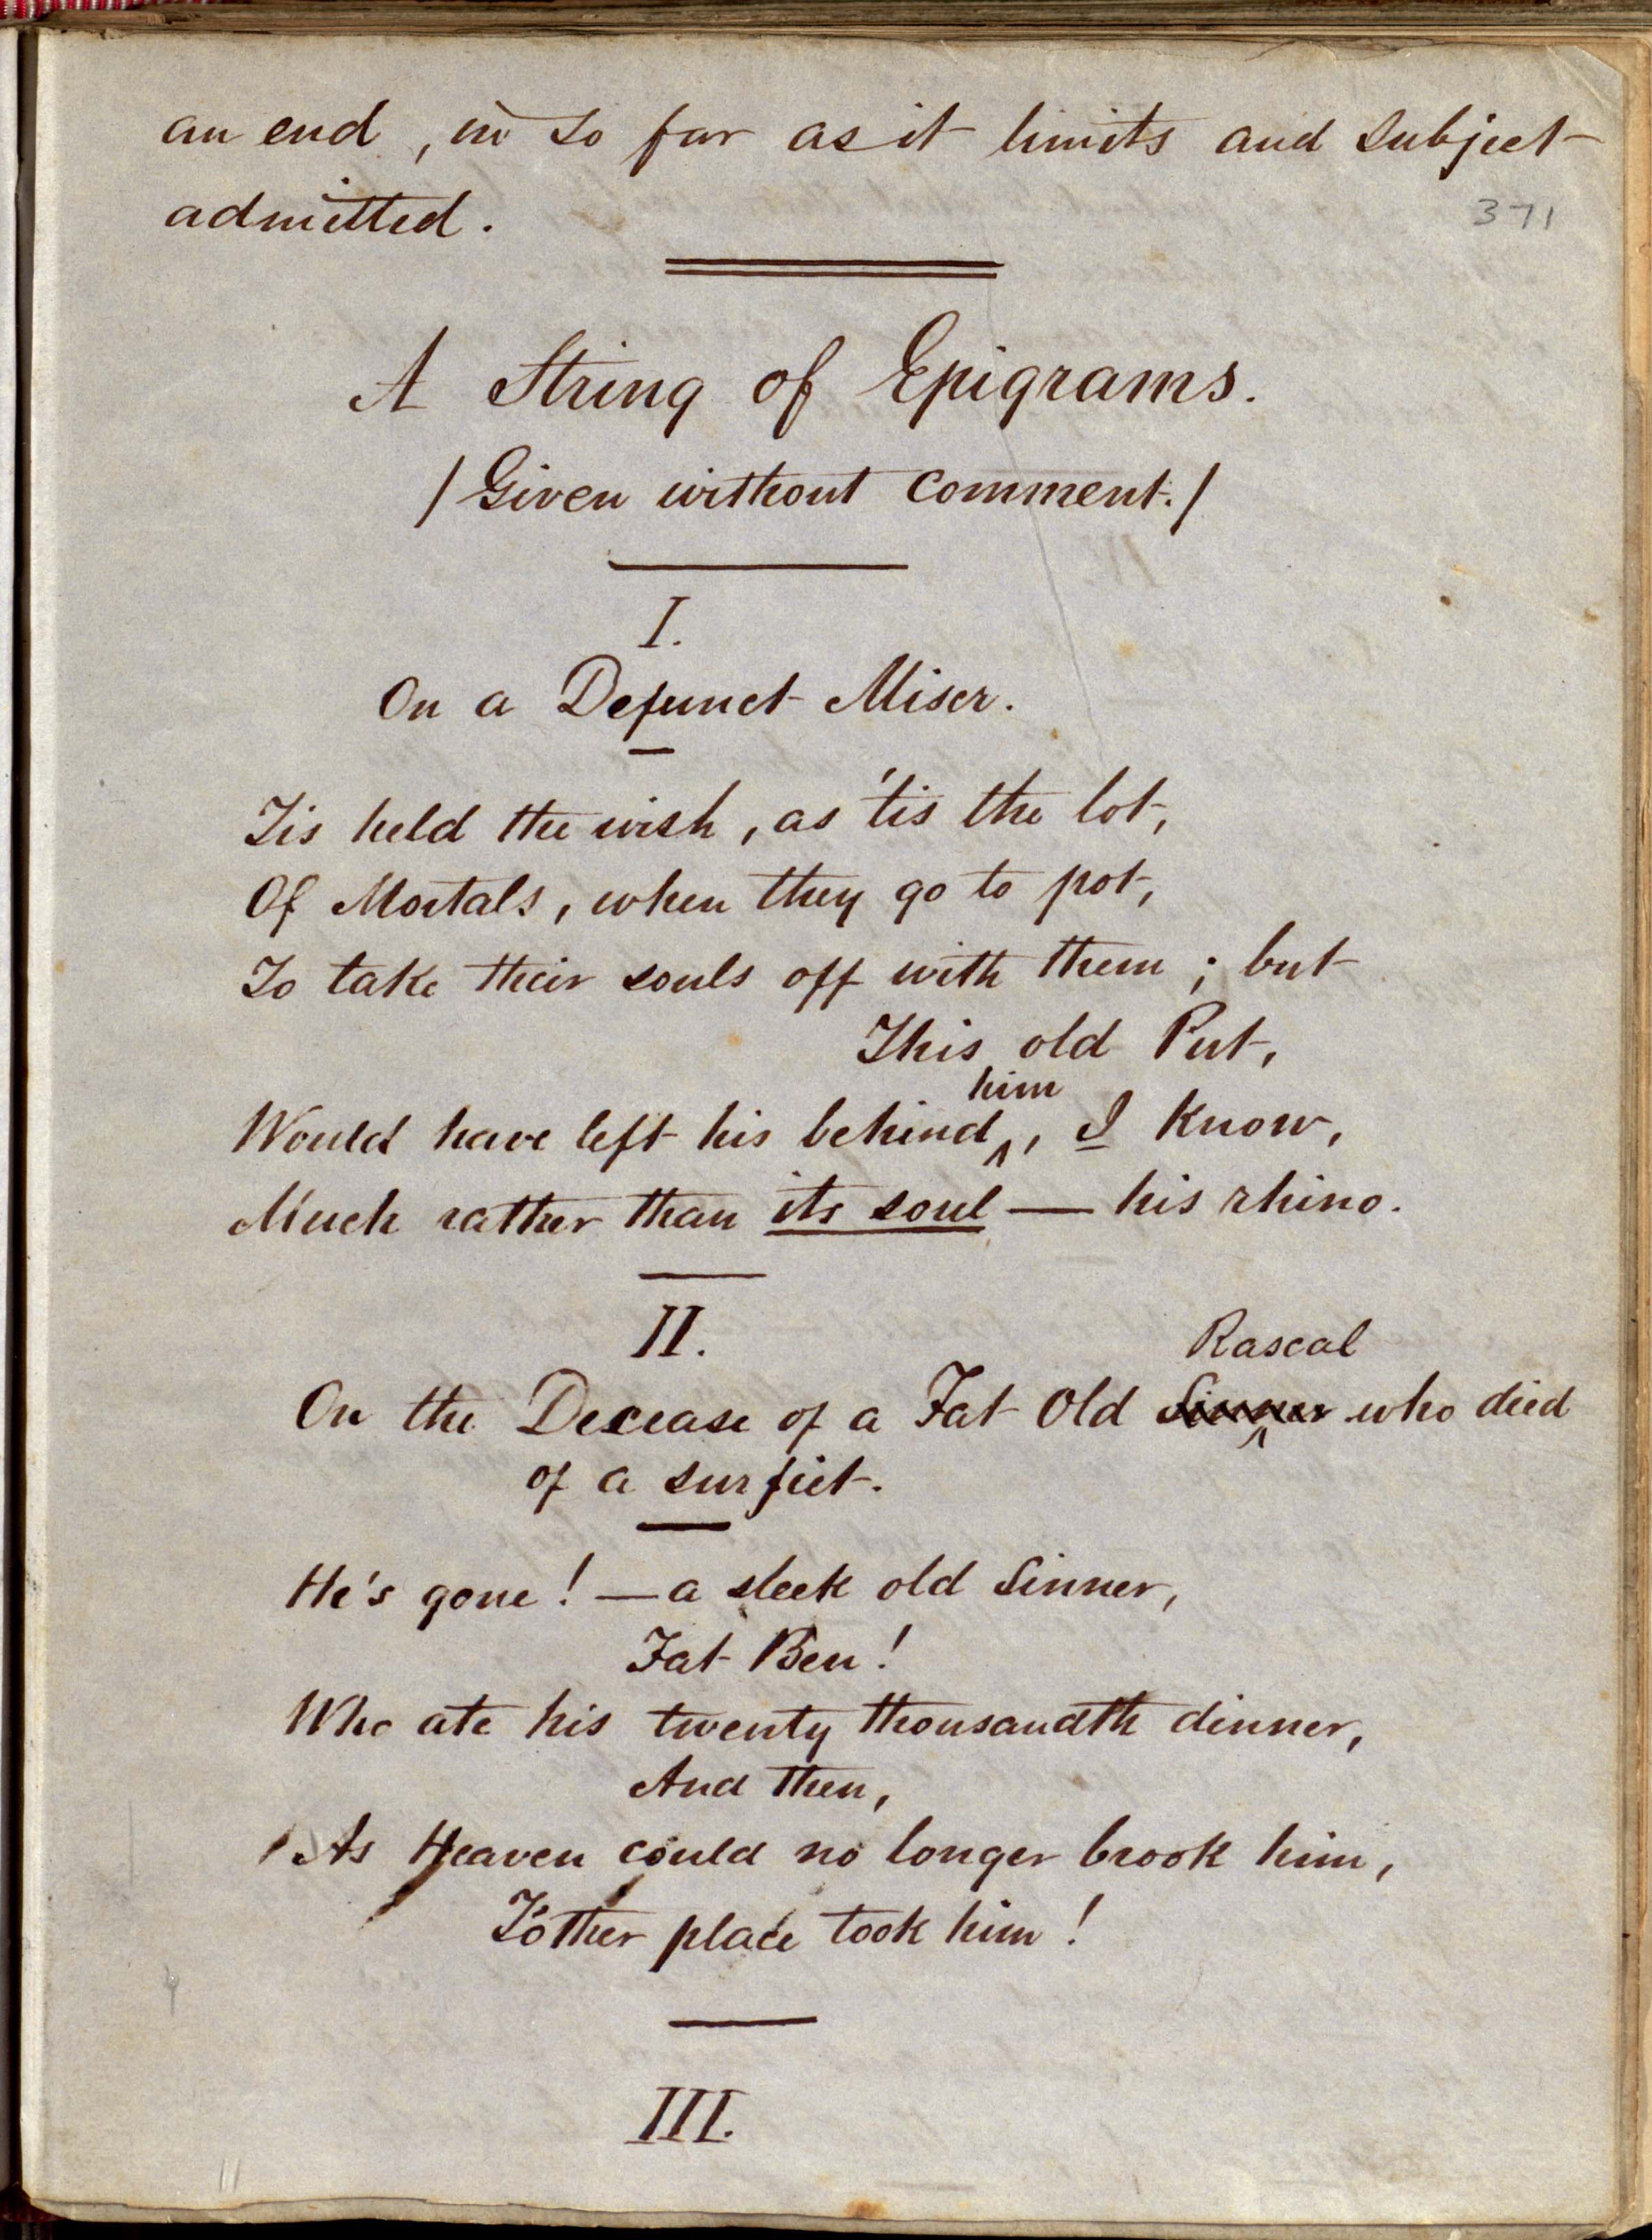 an end, in so far as it limits and subject
admitted.
371
A String of Epigrams.
/Given without comment./
I.
On a Defunct Miser.
Tis held the wish, as 'tis the lot,
Of Mortals, when they go to pot,
To take their souls off with them; but
This old Put,
him
Would have left his behind ^, I know,
Much rather than its soul — his rhino.
II.
Rascal
On the Decease of a Fat Old Sinner who died
of a surfiet.
He's gone! — a sleek old Sinner,
Fat Ben!
Who ate his twenty thousandth dinner,
And then,
As Heaven could no longer brook him,
T'other place took him!
III.